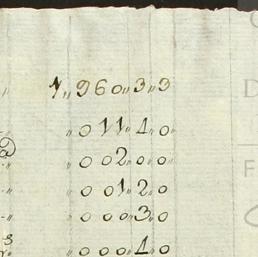 1,, 960,, 3,, 3
,, 011,, 1,, 0
,, 002,, 0,, 0
,, 001,, 2,, 0
,, 000,, 3,, 0
,, 000,, 1,, 0